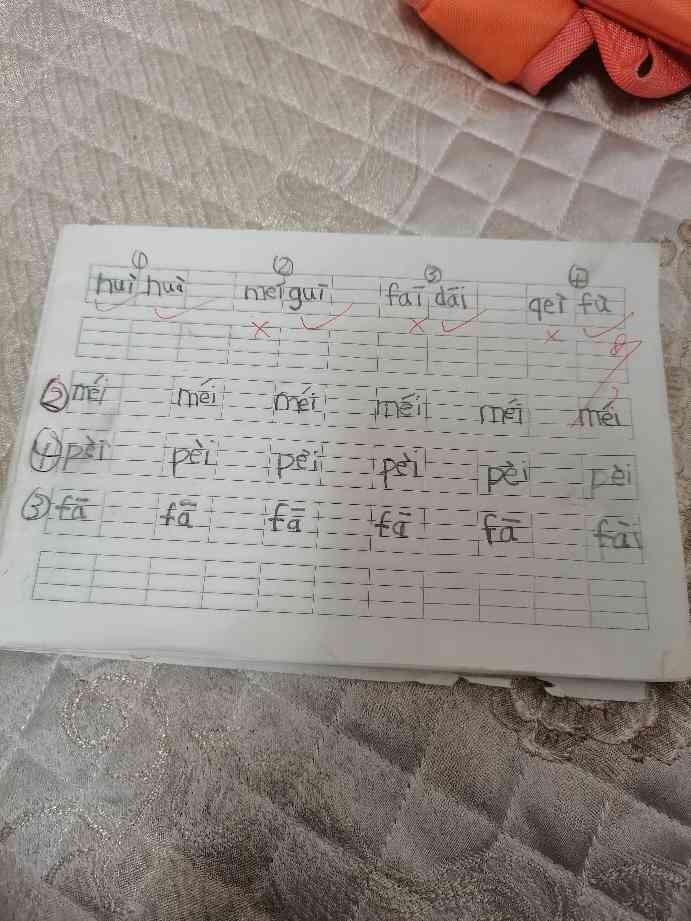 ① ② ③ ④
huì huà meī guī faī dāi qeì fú
8
② méi méi méi méi méi méi
④ pèi pèi pèi pèi pèi pèi
③ fā fā fā fā fā fài